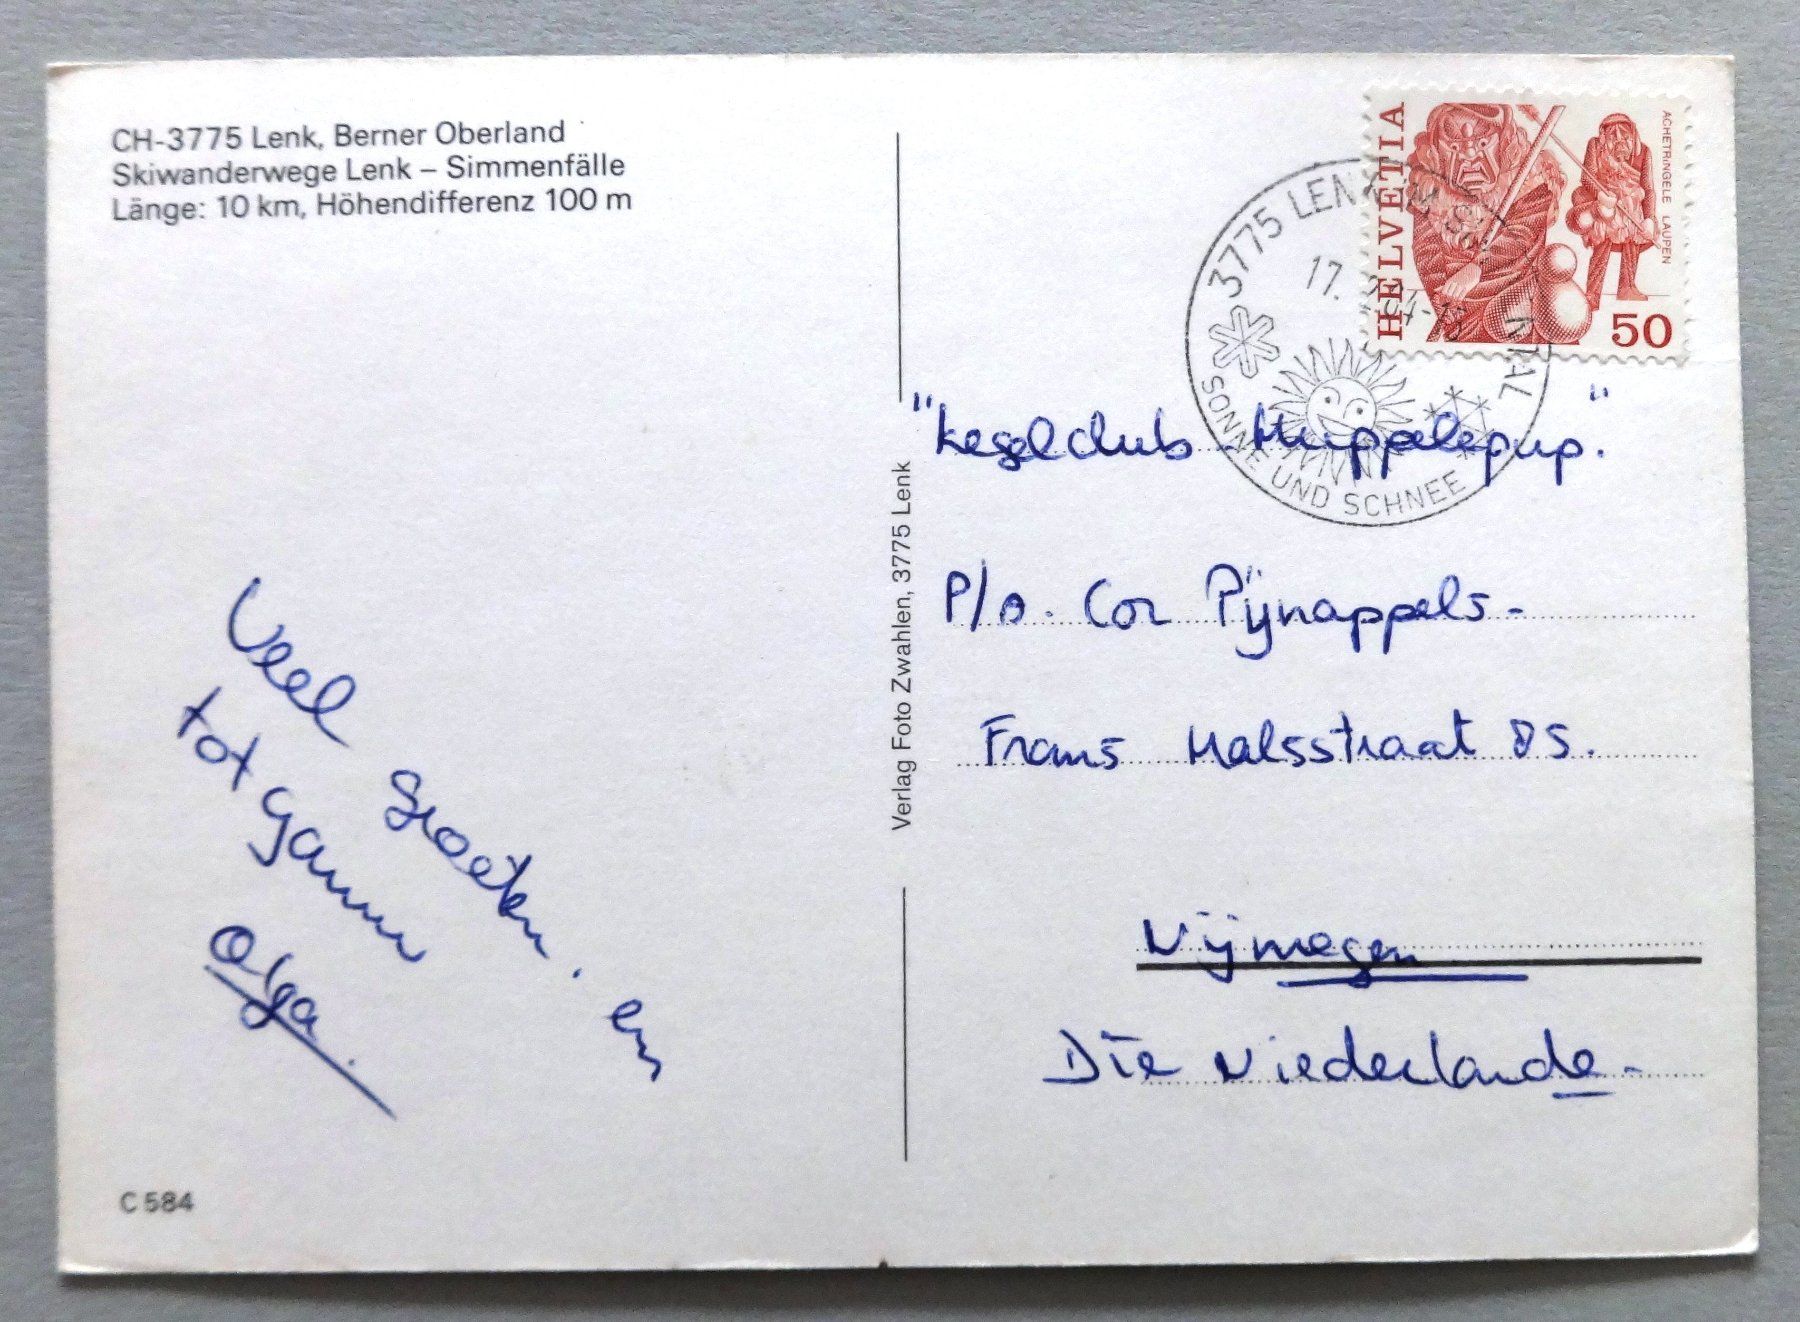 CH-3775 Lenk, Berner Oberland
Skiwanderwege Lenk – Simmenfälle
Länge: 10 km, Höhendifferenz 100 m
Veel groeten. en
tot gauw
Olga.
C 584
Verlag Foto Zwahlen, 3775 Lenk
HELVETIA
ACHETRINGELE LAUPEN
50
3775 LENK IM
17.
SONNE UND SCHNEE
"Kegelclub Muppelepup."
P/a. Cor Pijnappels-
Frans Halsstraat 85.
Nijmegen
Die Niederlande-